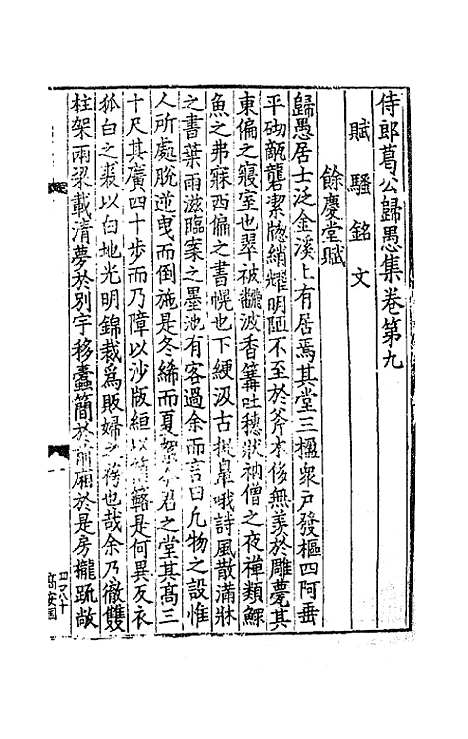 侍郎葛公歸愚集卷第九
賦騷銘文
餘慶堂賦
歸愚居士泛金溪上有居焉其堂三楹衆戸發樞四阿垂
平砌甋甓潔牕綃耀明陋不至於斧木侈無羡於雕甍其
東偏之寢室也翠被飜波香篝吐穗狀衲僧之夜禪類鰥
魚之弗寐西偏之書幌也下綆汲古據臯哦詩風散滿牀
之書葉雨滋臨案之墨池有客過余而言曰凡物之設惟
人所處脱逆曳而倒施是冬絺而夏
君之堂其髙三
十尺其廣四十步而乃障以沙版絙以
簬是何異反衣
狐白之裘以白地光明錦裁爲販婦之袴也哉余乃徹雙
柱架兩梁載清夢於别宇移蠹簡於前廂於是房櫳疏敞